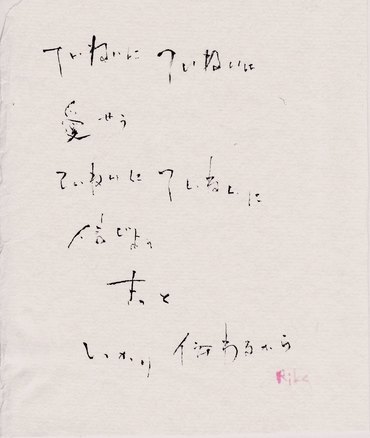 ていねいに ていねいに
愛せう
ていねいに ていねいに
信じよう
きっと
しっかり 伝わるから